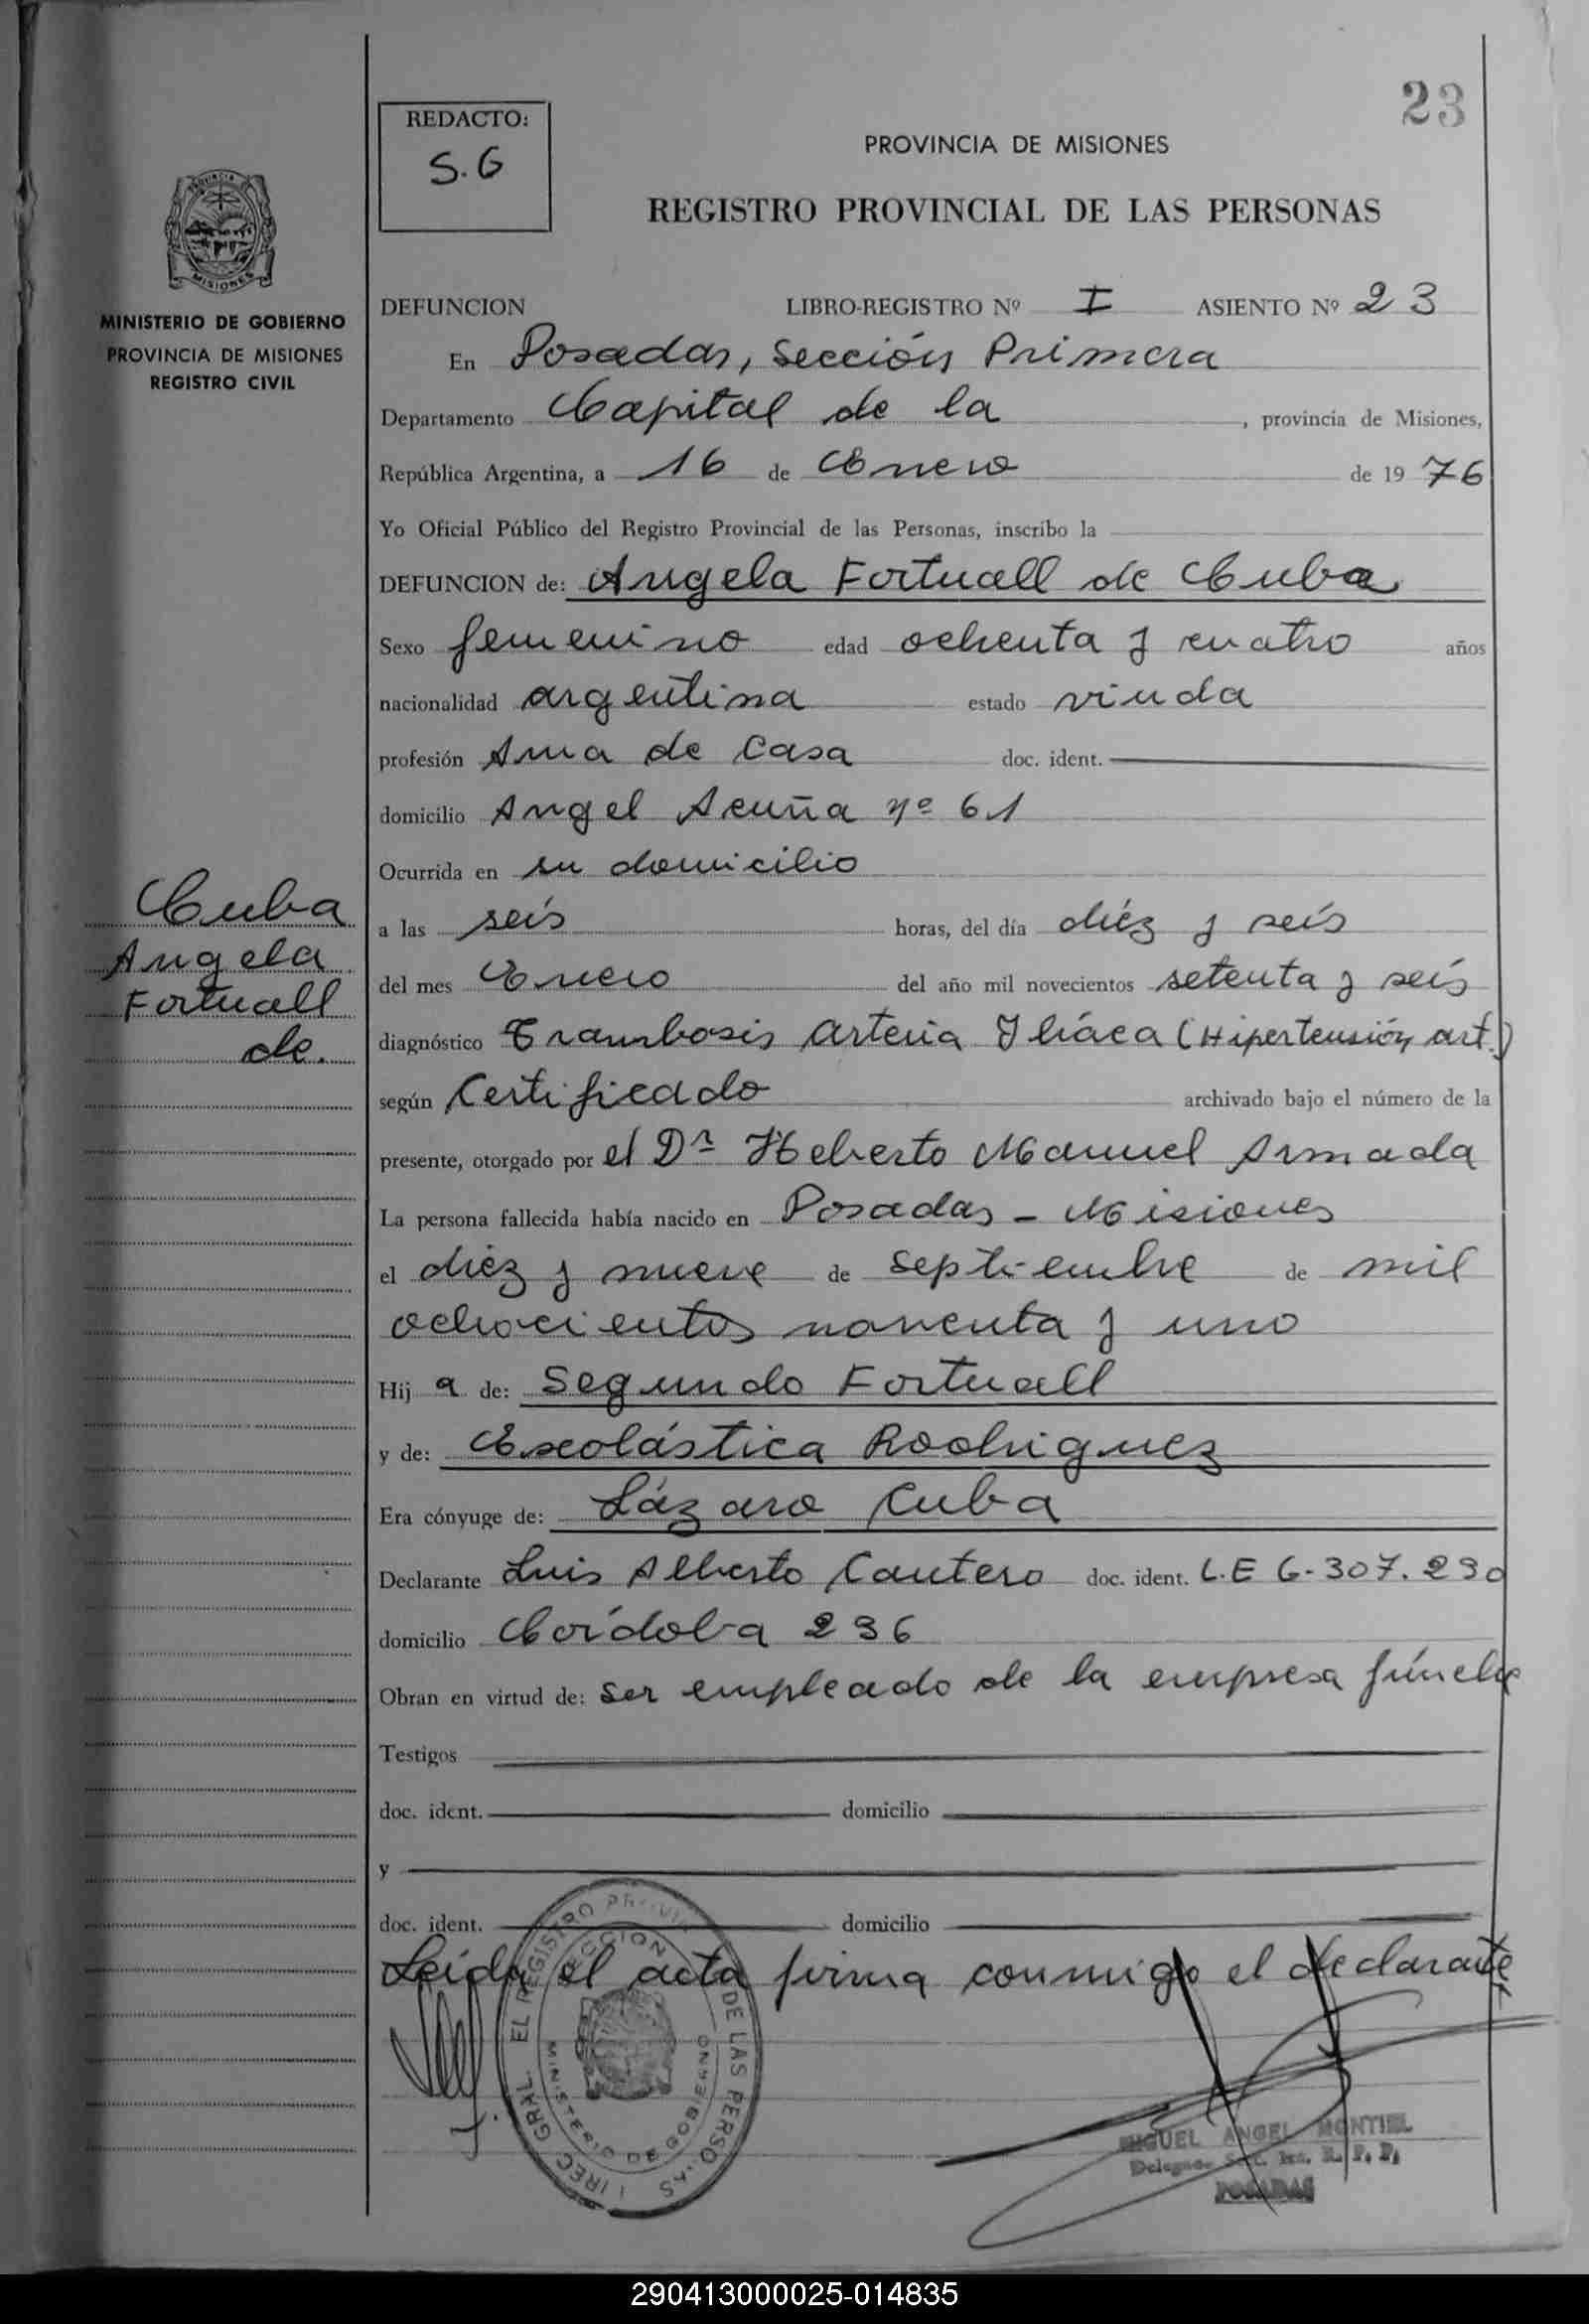 23
REDACTO:
S.G
PROVINCIA DE MISIONES
REGISTRO PROVINCIAL DE LAS PERSONAS
MISIONES
MINISTERIO DE GOBIERNO
PROVINCIA DE MISIONES
REGISTRO CIVIL
DEFUNCION LIBRO-REGISTRO Nº I ASIENTO Nº 23
En Posadas, Sección Primera
Departamento Capital de la , provincia de Misiones,
República Argentina, a 16 de Enero de 19 76
Yo Oficial Público del Registro Provincial de las Personas, inscribo la
DEFUNCION de: Angela Fortuall de Cuba
Sexo femenino edad ochenta y cuatro años
nacionalidad argentina estado viuda
profesión Ama de Casa doc. ident.
domicilio Angel Acuña nº 61
Ocurrida en su domicilio
a las seís horas, del día diéz y seís
del mes Enero del año mil novecientos setenta y seís
diagnóstico Trambosis Arteria Ilíaca (Hipertensión art.)
según Certificado archivado bajo el número de la
presente, otorgado por el Dr Heberto Manuel Armada
La persona fallecida había nacido en Posadas - Misiones
el diéz y nueve de septiembre de mil
ochocientos noventa y uno
Hij a de: Segundo Fortuall
y de: Escolástica Rodriguez
Era cónyuge de: Lázaro Cuba
Declarante Luis Alberto Cantero doc. ident. L.E 6.307.230
domicilio Córdoba 236
Obran en virtud de: Ser empleado de la empresa fúnebre
Testigos
doc. ident. domicilio
y
doc. ident. domicilio
Leída el acta firma conmigo el declarante
Cuba
Angela
Fortuall
de.
MINISTERIO DE GOBIERNO
MIGUEL ANGEL MONTIEL
POSADAS
290413000025-014835